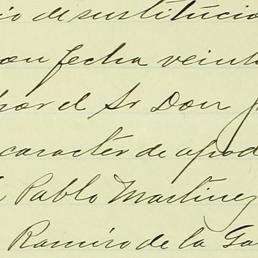 io de sustitucio
con fecha veint
por el Sr Don
caracter de apod
Pablo Martinez
Ramiro de la Ga